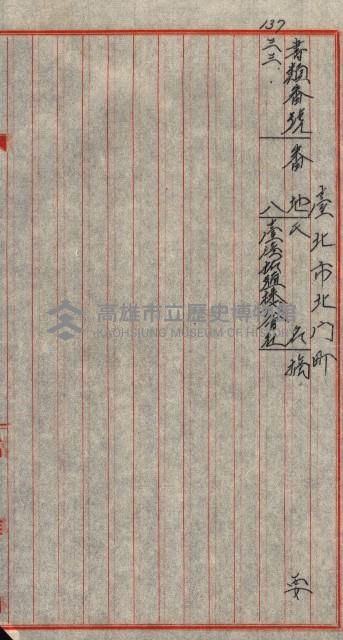 臺北市北门町
書類番號 番地 氏名 摘要
137
三三. 八 臺灣拓殖株式會社
高雄市立歷史博物館
KAOHSIUNG MUSEUM OF HISTORY